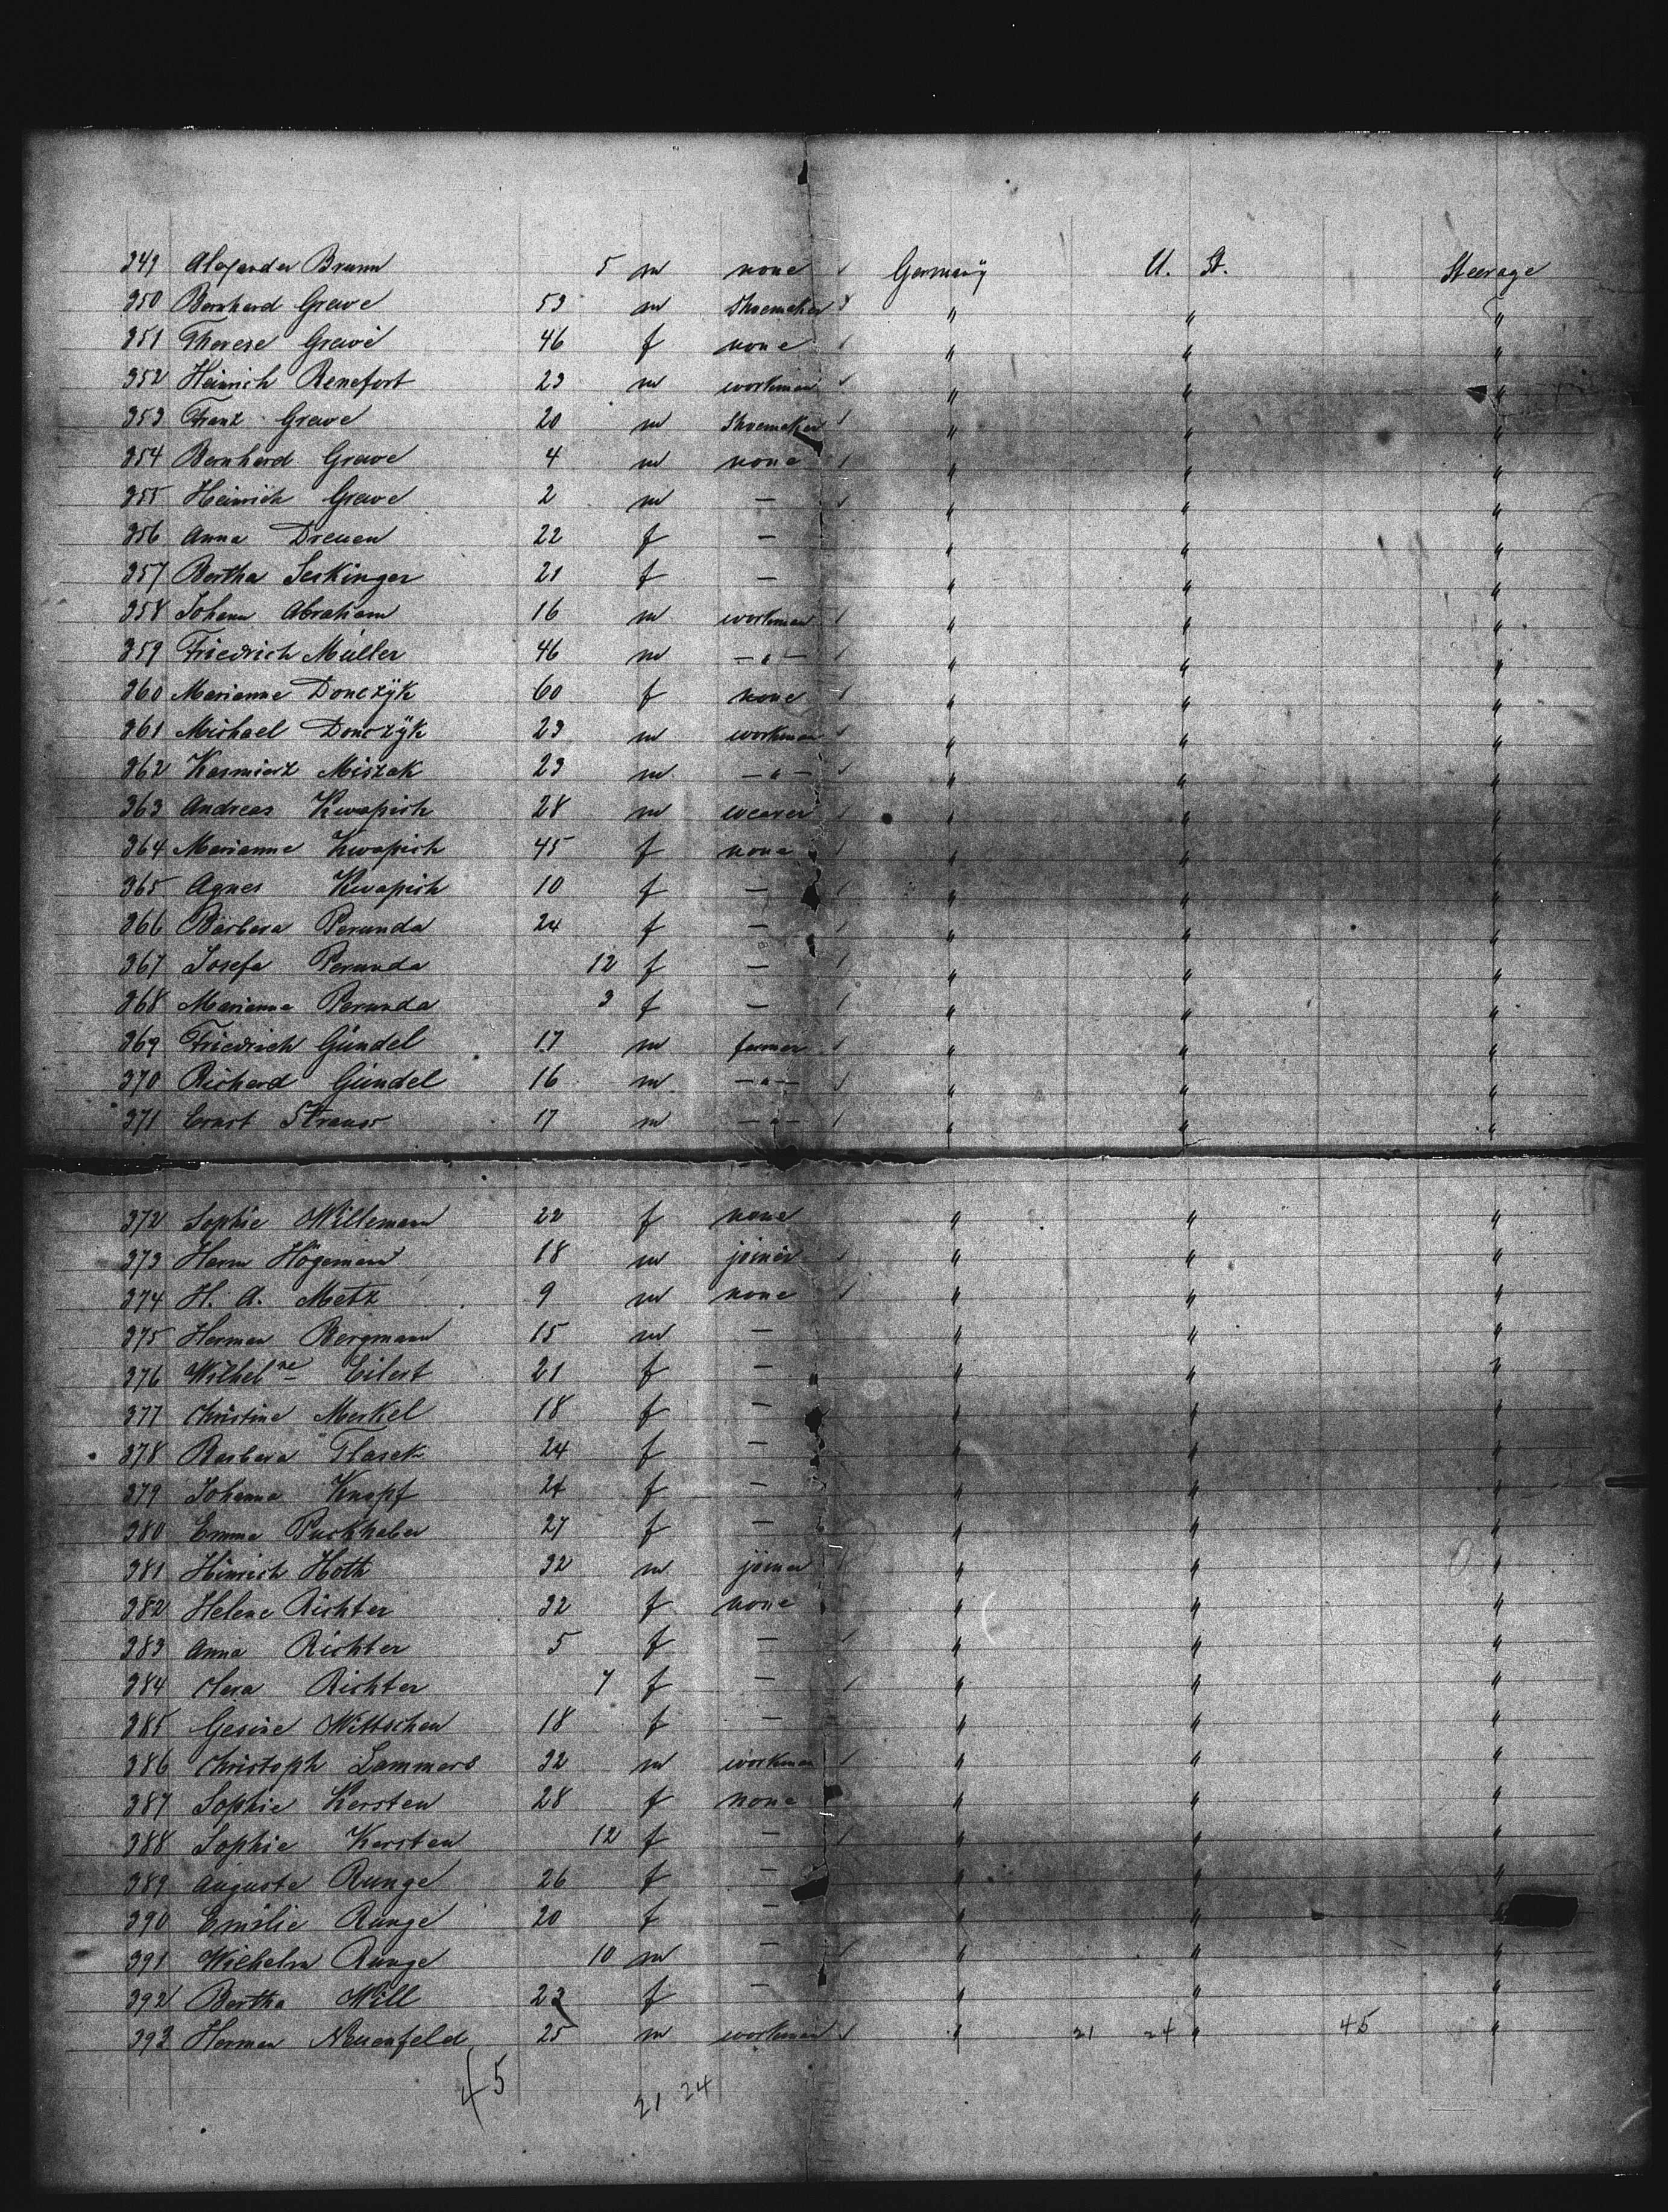 349 Alexander Brunn 5 m none Germany U. St. Steerage
350 Bernhard Grewe 53 m Shoemaker " " "
351 Therese Grewe 46 f none " " "
352 Heinrich Renefort 23 m workman " " "
353 Franz Grewe 20 m Shoemaker " " "
354 Bernhard Grewe 4 m none " " "
355 Heinrich Grewe 2 m — " " "
356 Anna Dreuen 22 f — " " "
357 Bertha Seckinger 21 f — " " "
358 Johann Abraham 16 m workman " " "
359 Friedrich Müller 46 m —"— " " "
360 Marianne Donczÿk 60 f none " " "
361 Michael Donczÿk 23 m workman " " "
362 Kasmierz Miszak 23 m —"— " " "
363 Andreas Kwapich 28 m weaver " " "
364 Marianne Kwapich 45 f none " " "
365 Agnes Kwapich 10 f — " " "
366 Barbara Perunda 24 f — " " "
367 Josefa Perunda 12 f — " " "
368 Marianna Perunda 3 f — " " "
369 Friedrich Gündel 17 m farmer " " "
370 Richard Gündel 16 m —"— " " "
371 Ernst Strauss 17 m —"— " " "
372 Sophie Willemann 22 f none " " "
373 Harm Högemann 18 m joiner " " "
374 H. A. Metz 9 m none " " "
375 Herman Bergmann 15 m — " " "
376 Wilhelne Eilert 21 f — " " "
377 Christine Merkel 18 f — " " "
378 Barbara Flasek 24 f — " " "
379 Johanna Knapf 24 f — " " "
380 Emma Puckhaber 27 f — " " "
381 Hinrich Hoth 32 m joiner " " "
382 Helene Richter 32 f none " " "
383 Anna Richter 5 f — " " "
384 Clara Richter 7 f — " " "
385 Gesine Wittschen 18 f — " " "
386 Christoph Lammers 32 m workman " " "
387 Sophie Kersten 28 f none " " "
388 Sophie Kersten 12 f — " " "
389 Auguste Runge 26 f — " " "
390 Emilie Runge 20 f — " " "
391 Wilhelm Runge 10 m — " " "
392 Bertha Will 23 f — " " "
393 Herman Neuenfeld 25 m workman " 21 24 " 45 "
45 21 24